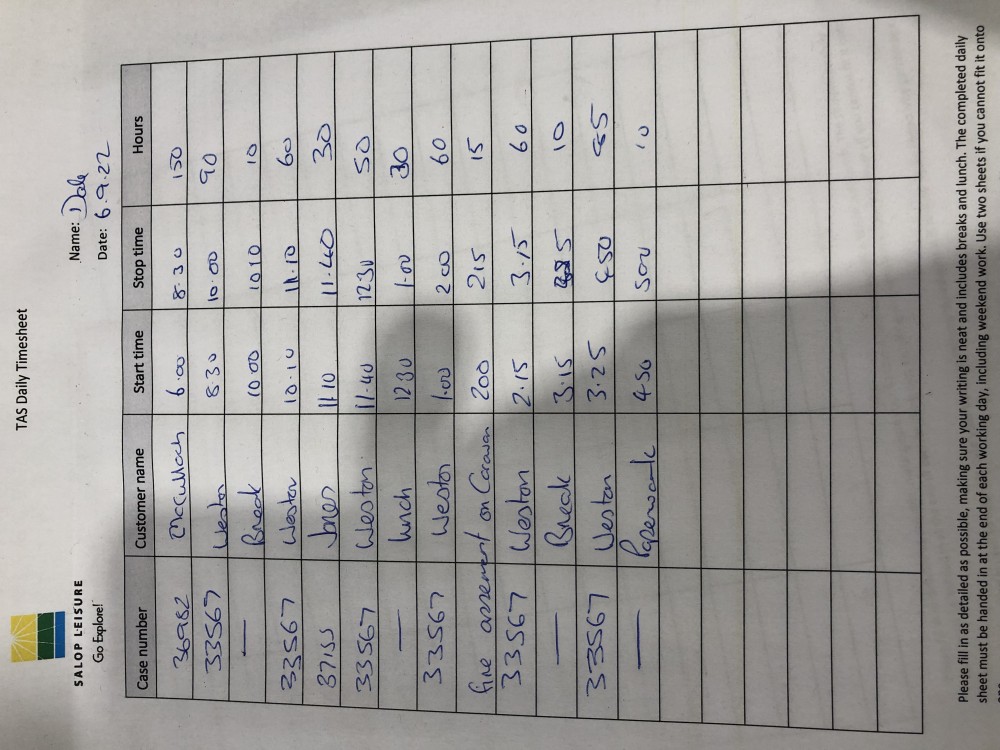 TAS Daily Timesheet
SALOP LEISURE
Go Explore!
Name: Dale
Date: 6.9.22
Case number Customer name Start time Stop time Hours
36982 McCulloch 6.00 8.30 150
33567 Weston 8.30 10.00 90
— Break 10.00 10 10 10
33567 Weston 10.10 11.10 60
37155 Jones 11.10 11.40 30
33567 Weston 11.40 12.30 50
— Lunch 12.30 1.00 30
33567 Weston 1.00 2.00 60
fire assement on Caravan 200 215 15
33567 Weston 2.15 3.15 60
— Break 3.15 10
33567 Weston 3.25 4.50 85
— Paperwork 4.50 500 10
Please fill in as detailed as possible, making sure your writing is neat and includes breaks and lunch. The completed daily
sheet must be handed in at the end of each working day, including weekend work. Use two sheets if you cannot fit it onto